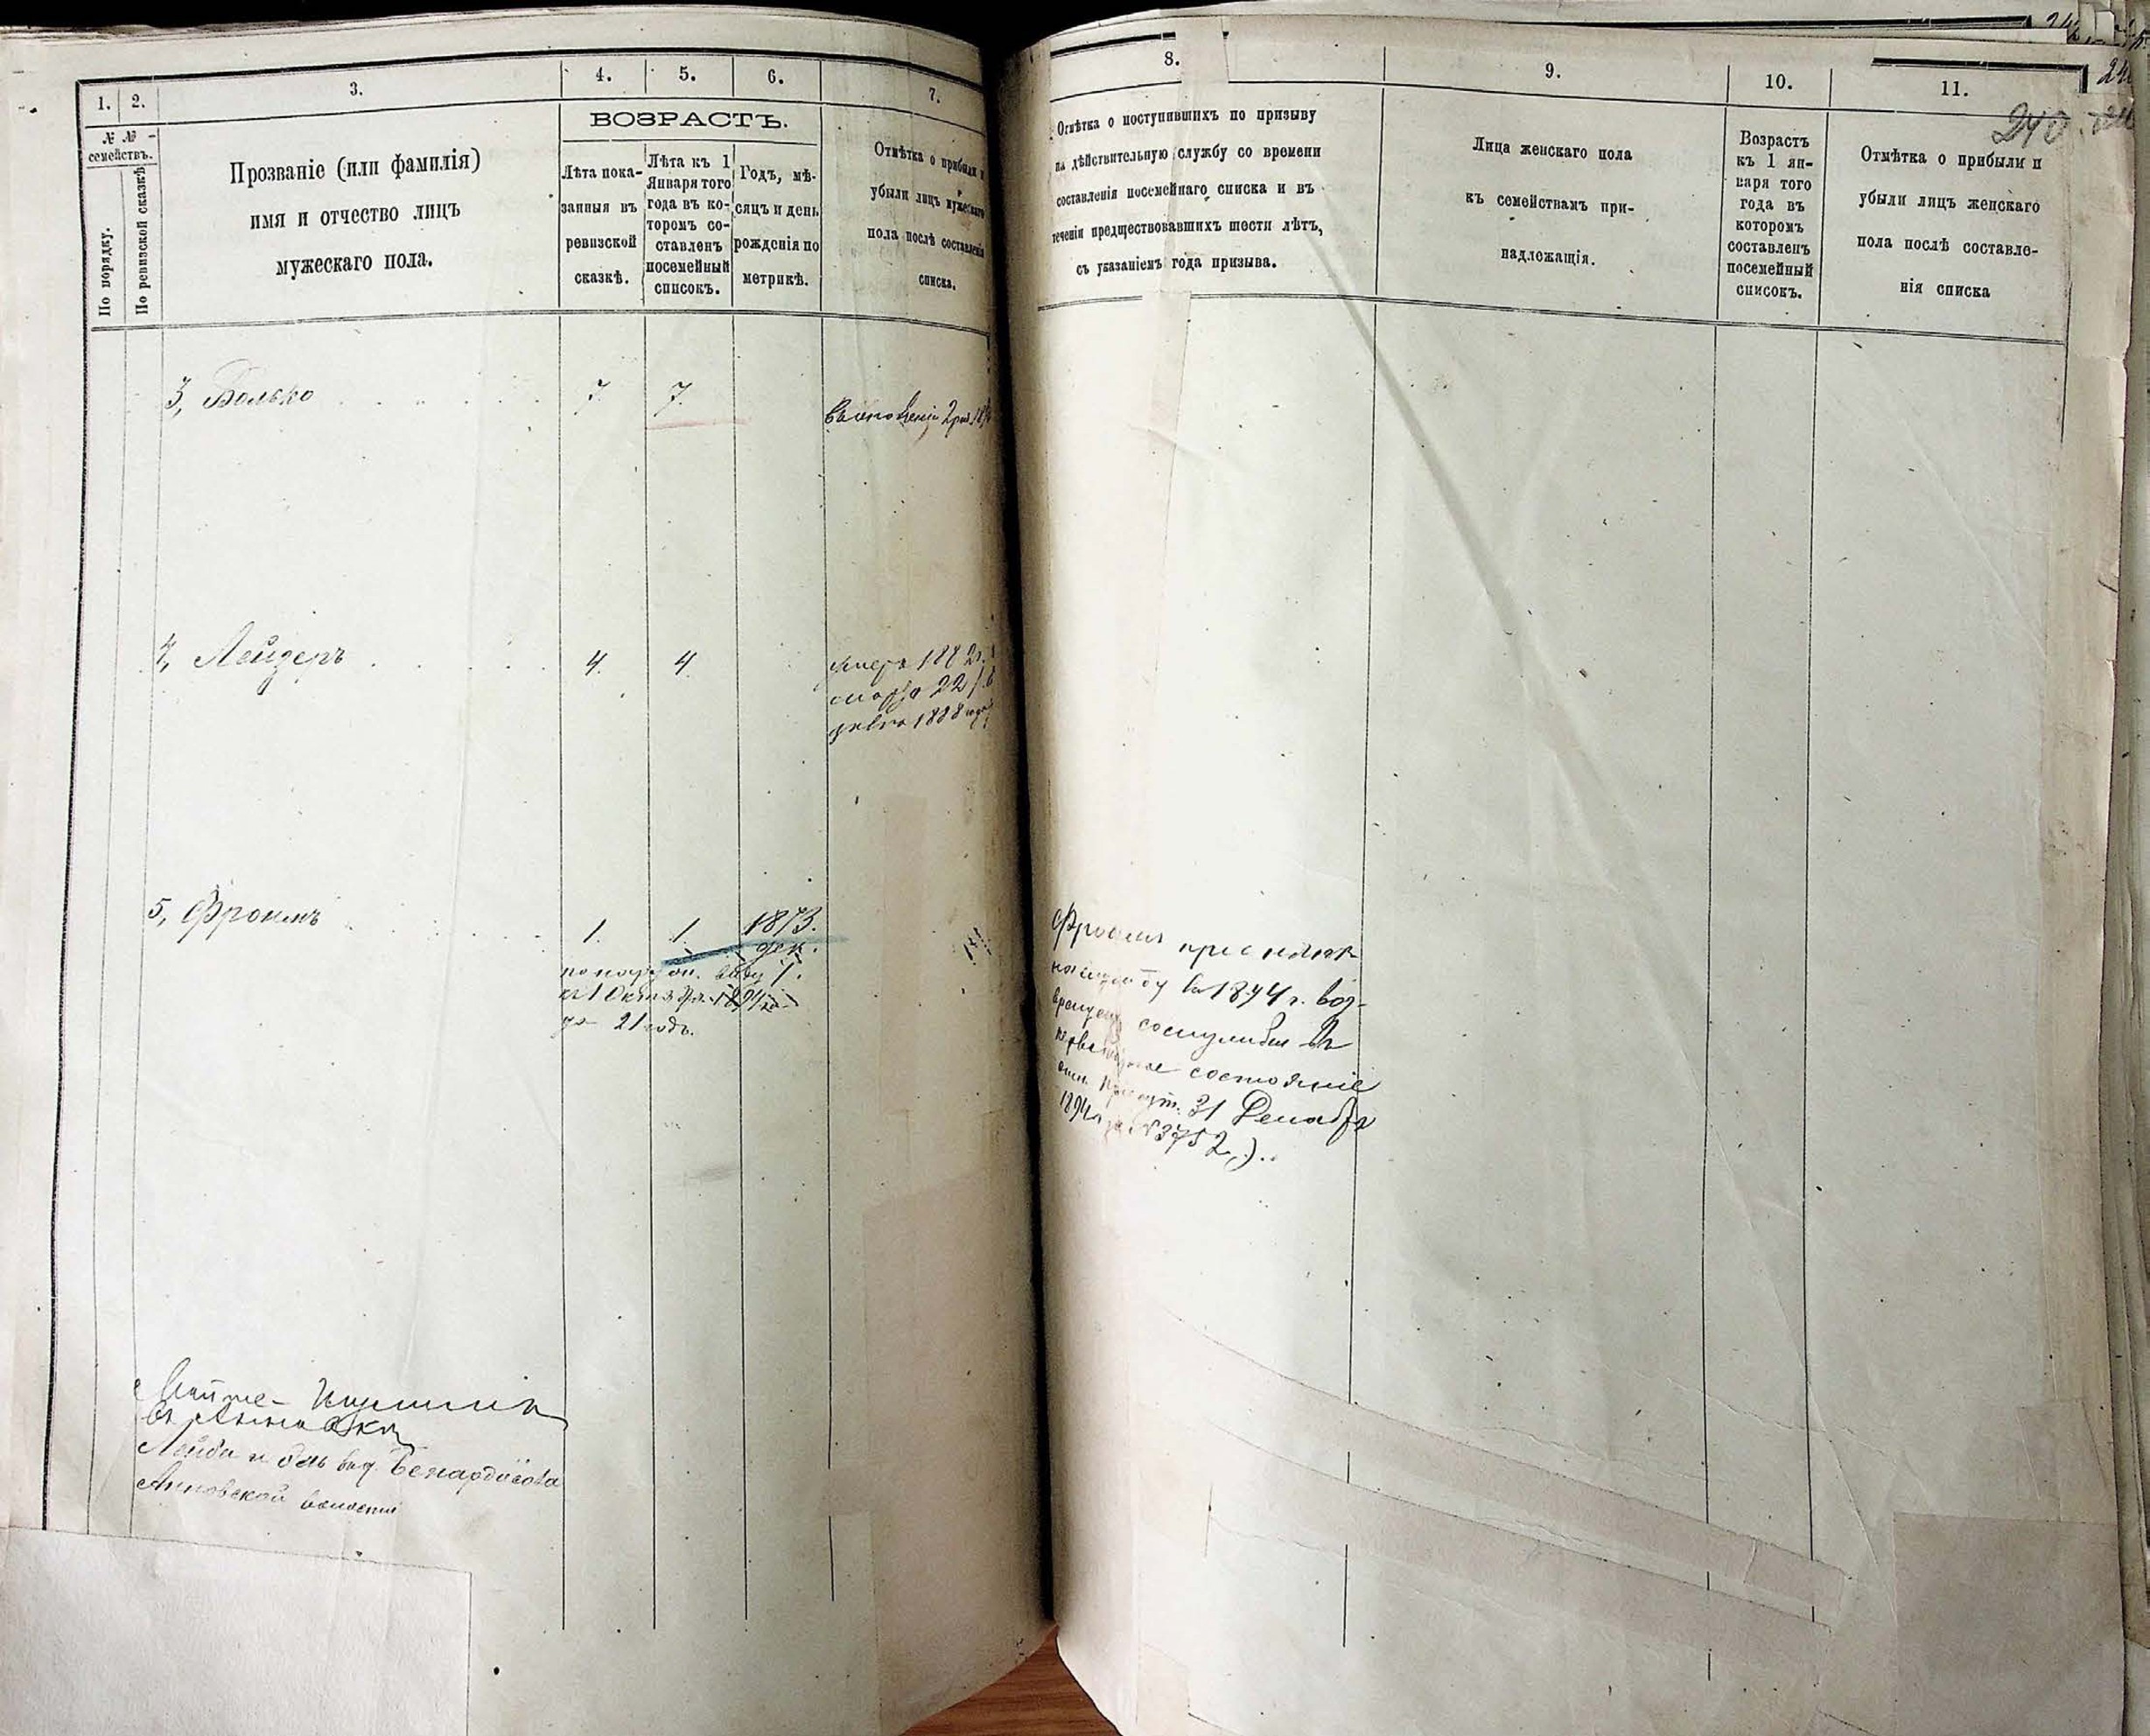 1.
2.
3.
4.
5.
6.
7.
№ №
семействъ.
По порядку.
По ревизской сказкѣ
Прозваніе (или фамилія)
имя и отчество лицъ
мужескаго пола.
ВОЗРАСТЪ.
Лѣта пока-
занныя въ
ревизской
сказкѣ.
Лѣта къ 1
Января того
года въ ко-
торомъ со-
ставленъ
посемейный
списокъ.
Годъ, мѣ-
сяцъ и день
рожденія по
метрикѣ.
Отмѣтка о прибыли и
убыли лицъ мужескаго
пола послѣ составленія
списка.
3, Волько 7. 7.
4, Лейзеръ 4. 4.
умеръ 1882г.
марта 22
1888 года
5, Фроимъ 1. 1. 1873.
дек.
1.
къ 1 Октября 1894 г.
21 годъ.
въ Анновкѣ
Лейба
Анновской волости
8.
9.
10.
11.
240
Отмѣтка о поступившихъ по призыву
на дѣйствительную службу со времени
составленія посемейнаго списка и въ
теченіи предшествовавшихъ шести лѣтъ,
съ указаніемъ года призыва.
Лица женскаго пола
къ семействамъ при-
надлежащія.
Возрастъ
къ 1 ян-
варя того
года въ
которомъ
составленъ
посемейный
списокъ.
Отмѣтка о прибыли и
убыли лицъ женскаго
пола послѣ составле-
нія списка
Фроимъ принятъ
на службу въ 1894 г. воз-
вращенъ
состояніе
31 Декабря
1894 г. за № 3752).